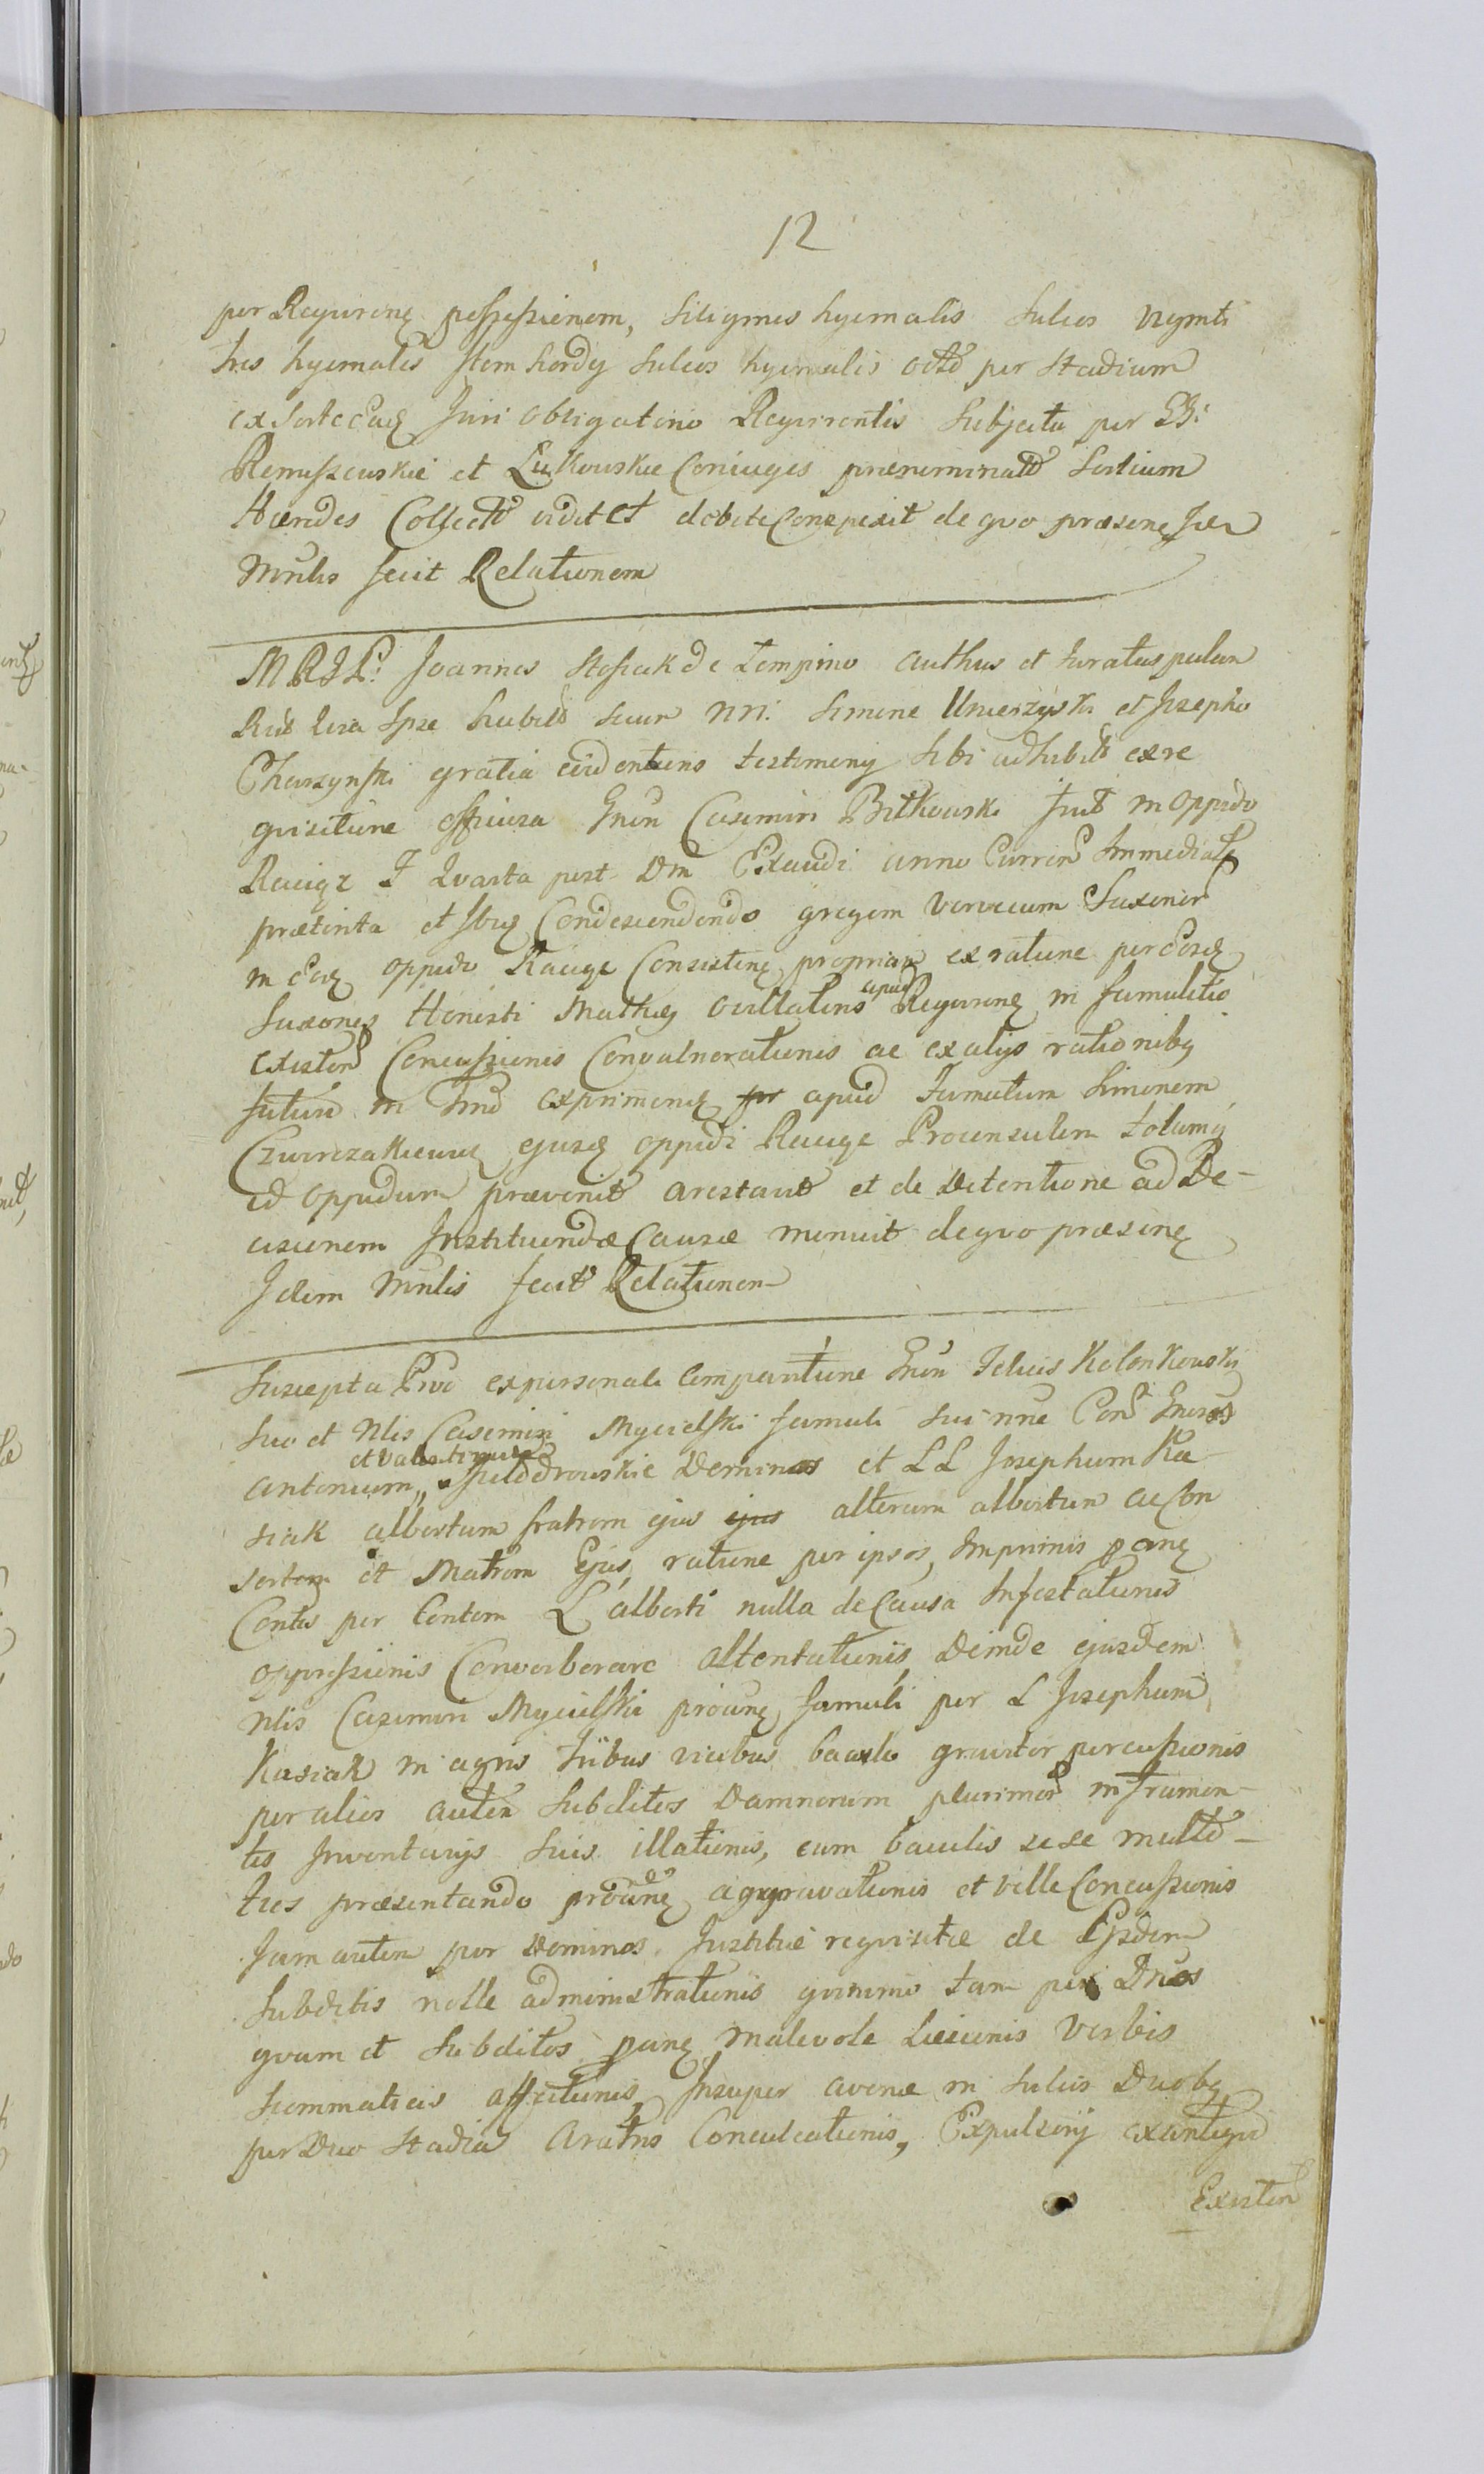 12
per Requirenę possessionem, Siliginis hyemalis Sulcos viginti
tres hyemales Item hordej Sulcos hyemalis octo per Stadium
ex Sorte eadę Juri obligatorio Requirentis Subjecta per GG:
Remiszewskie et Lukowskie Coniuges prænominatt Sortium
Hæredes Collectt vidit et debite Conspexit de quo præsenę Idem
Mnlis fecit Relationem
MRGL: Joannes Stosiak de Lempino authus et Juratus palam
Rudt Ipse habito secum NN: Simone Umierzyski et Josepho
Charzynski gratia evidentions testimony Sibi adhibito ex re
quisitione officiosa Gnon Casimiri Bitkowski Judt in Oppido
Raciąż F Quarta post Dm Exaudi anno Curren Immediatę
præterita et Ibię Condescendendo gregem vervecum Saxoner
in eodę oppido Raciąż Consistenę propriam ex ratione per eosdę
Saxones Honesti Mathię ovillatens apud Requirenę in famulitio
existen Concussionis Convulnerationis ac ex alys rationibꝫ
futuro in Tmo exprimenę apud Famatum Simonem
ejusdę oppidi Raciąż Proconsulem totumꝗ
id oppidum prævenit arestavit et de Detentione ad De-
cisionem Instituendæ Causæ monuit de quo præsenę
Idem Mnlis fecit Relationem
Suscepta Prot ex personali Comparitione Gnon Felicis Kolonkowski
suo et Nlis Casimiri Mycielski famuli sui nne Con Gnosos
antonium et Valentinum Dominos et LL Josephum Ka
siak albertum fratrem ejus ejus alterum albertum ac Con
sortem et Matrem Ejus, ratione per ipsos, Imprimis
Contis per Conten L alberti nulla de Causa Infestationis
oppressionis Converberare attentationis Deinde ejusdem
Nlis Casimiri Mycielski famuli per L Josephum
Kasiak in agris tribus vicibus baculo graviter percussionis
per alios autem Subditos Damnorum plurimor in frumen-
tis Inventarys suis illationis, cum baculis sese multo-
ties præsentando aggravationis et velle Concussionis
Jam autem per Dominos Justitiæ requisitæ de Ejsdem
Subditis nolle administrationis quinimo tam per Dnos
quam et Subditos malevole Læsionis verbis
Scommaticis affectionis, Insuper avenæ in Sulcis Duobꝫ
per Duo Stadia Aratris Conculcationis, Expulsory ex antiquo
Existen